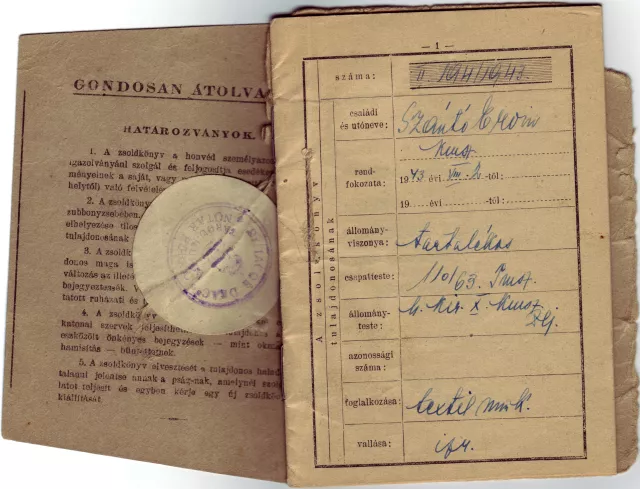 GONDOSAN ÁTOLVA
HATÁROZVÁNYOK.
1. A zsoldkönyv a honvéd személyazo
igazolványául szolgál és feljogosítja esedékes
ményeinek a saját, vagy
helytől) való felvételé
2. A zsoldkönyv
zubbonyzsebében,
elhelyezése tilos
tulajdonosának
3. A zsoldk
donos maga
változás az illető
bejegyeztessék. V
tatott ruházati és
4. A zsoldkönyv
katonai szervek teljesíthetn
eszközölt önkényes bejegyzések — mint oki
hamisítás — büntettetnek.
5. A zsoldkönyv elvesztését a tulajdonos halad
talanul jelentse annak a
latot teljesít és egyben kérje egy új zsoldkön
kiállítását.
— 1 —
A zsoldkönyv tulajdonosának
száma: II 194/1943
családi és utóneve: Szántó
rendfokozata: kmsz
1943 évi VIII-2-tól:
19 évi -tól:
állományviszonya: tartalékos
csapatteste: 110/63.
állományteste: M. kir. X. kmsz
azonossági száma:
foglalkozása: textil
vallása: izr.